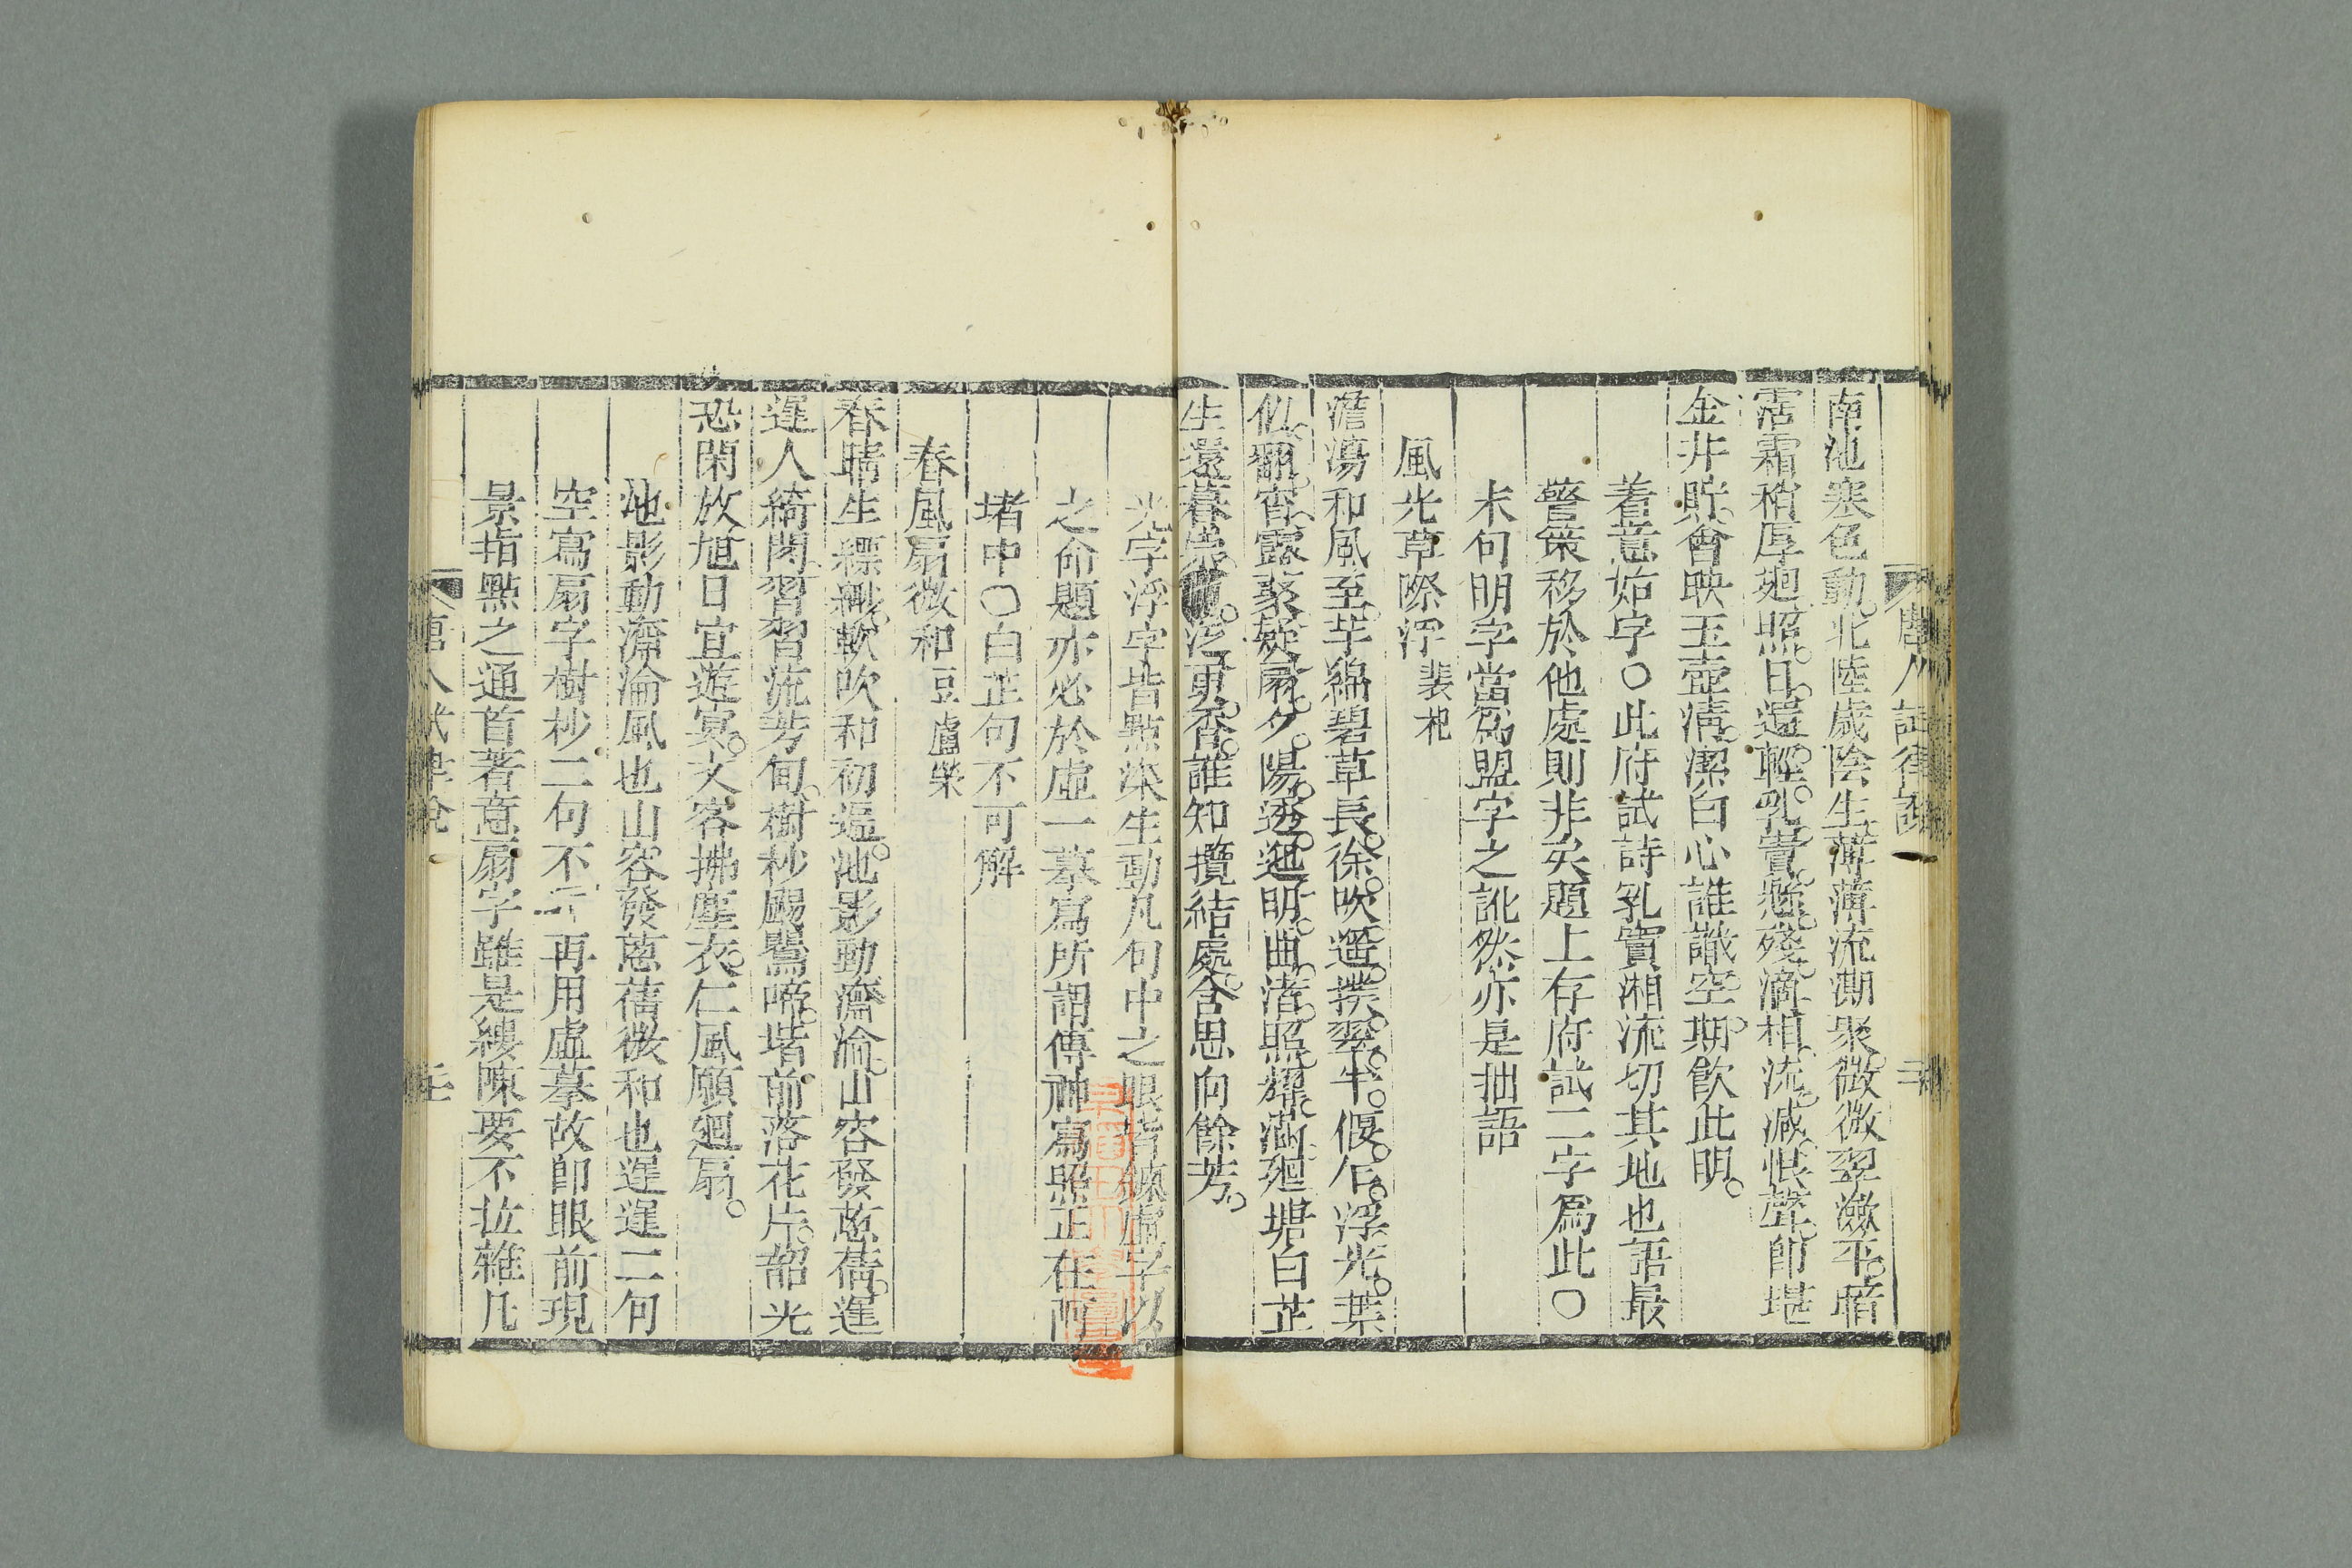 唐人試律說
南池寒色動北陸歲陰生薄薄流澌聚微微翠瀲平暗
霑霜稍厚廻照日還輕乳竇懸殘滴相流減恨聲即堪
金井貯會映玉壺清潔白心誰識空期飲此明
着意始字○此府試詩乳竇湘流切其地也語最
警策移於他處則非矣題上存府試二字爲此○
末句明字當爲盟字之訛然亦是拙語
風光草際浮 裴杞
澹蕩和風至芊綿碧草長徐吹遥撲翠半偃乍浮光葉
似翻宵露叢疑扇夕陽透迤明曲渚照耀滿廻塘白芷
生還暮崇泛更香誰知攬結處含思向餘芳
光字浮字皆點染生動凡句中之眼皆鍊虛字以
之命題亦必於虛一摹寫所謂傳神寫照正在阿
堵中○白芷句不可解
春風扇微和 豆盧榮
春晴生縹緲軟吹和初遍池影動淵淪山容發葱蒨遲
遲人綺閣習習流芳甸樹杪颺鶯啼堦前落花片韶光
恐閑放旭日宜遊宴文客拂塵衣仁風願廻扇
池影動淵淪風也山容發葱蒨微和也遲遲二句
空寫扇字樹杪二句不再用虛摹故卽眼前現
景指點之通首著意扇字雖是縷陳要不拉雜凡
唐人試律說